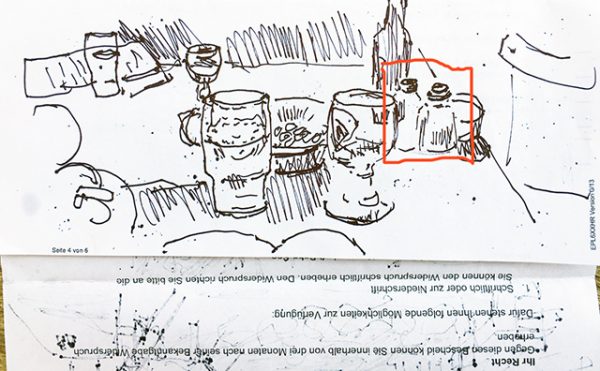 Seite 4 von 6
Version
Ihr Recht
Gegen diesen Bescheid können Sie innerhalb von drei Monaten nach seiner Bekanntgabe Widerspruch
erheben
Dafür stehen Ihnen folgende Möglichkeiten zur Verfügung:
1. Schriftlich oder zur Niederschrift
Sie können den Widerspruch schriftlich erheben. Den Widerspruch richten Sie bitte an die